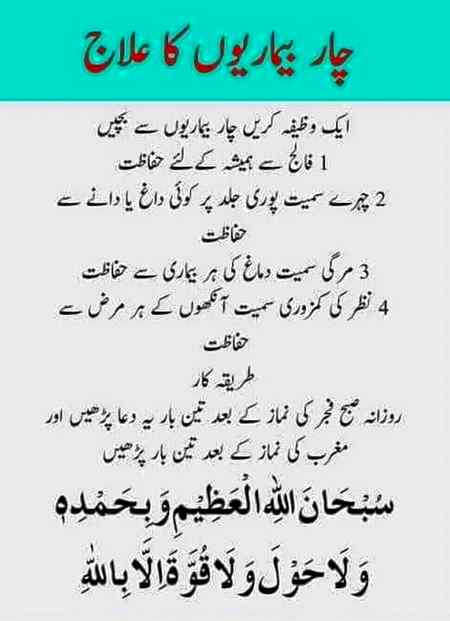 چار بیماریوں کا علاج
ایک وظیفہ کریں چار بیماریوں سے بچیں
1 فالج سے ہمیشہ کےلئے حفاظت
2 چہرے سمیت پوری جلد پر کوئی داغ یا دانے سے
حفاظت
3 مرگی سمیت دماغ کی ہر بیماری سے حفاظت
4 نظر کی کمزوری سمیت آنکھوں کے ہر مرض سے
حفاظت
طریقہ کار
روزانہ صبح فجر کی نماز کے بعد تین بار یہ دعا پڑھیں اور
مغرب کی نماز کے بعد تین بار پڑھیں
سُبْحَانَ اللّٰهِ الْعَظِيْمِ وَبِحَمْدِهٖ
وَلَا حَوْلَ وَلَا قُوَّةَ اِلَّا بِاللّٰهِ